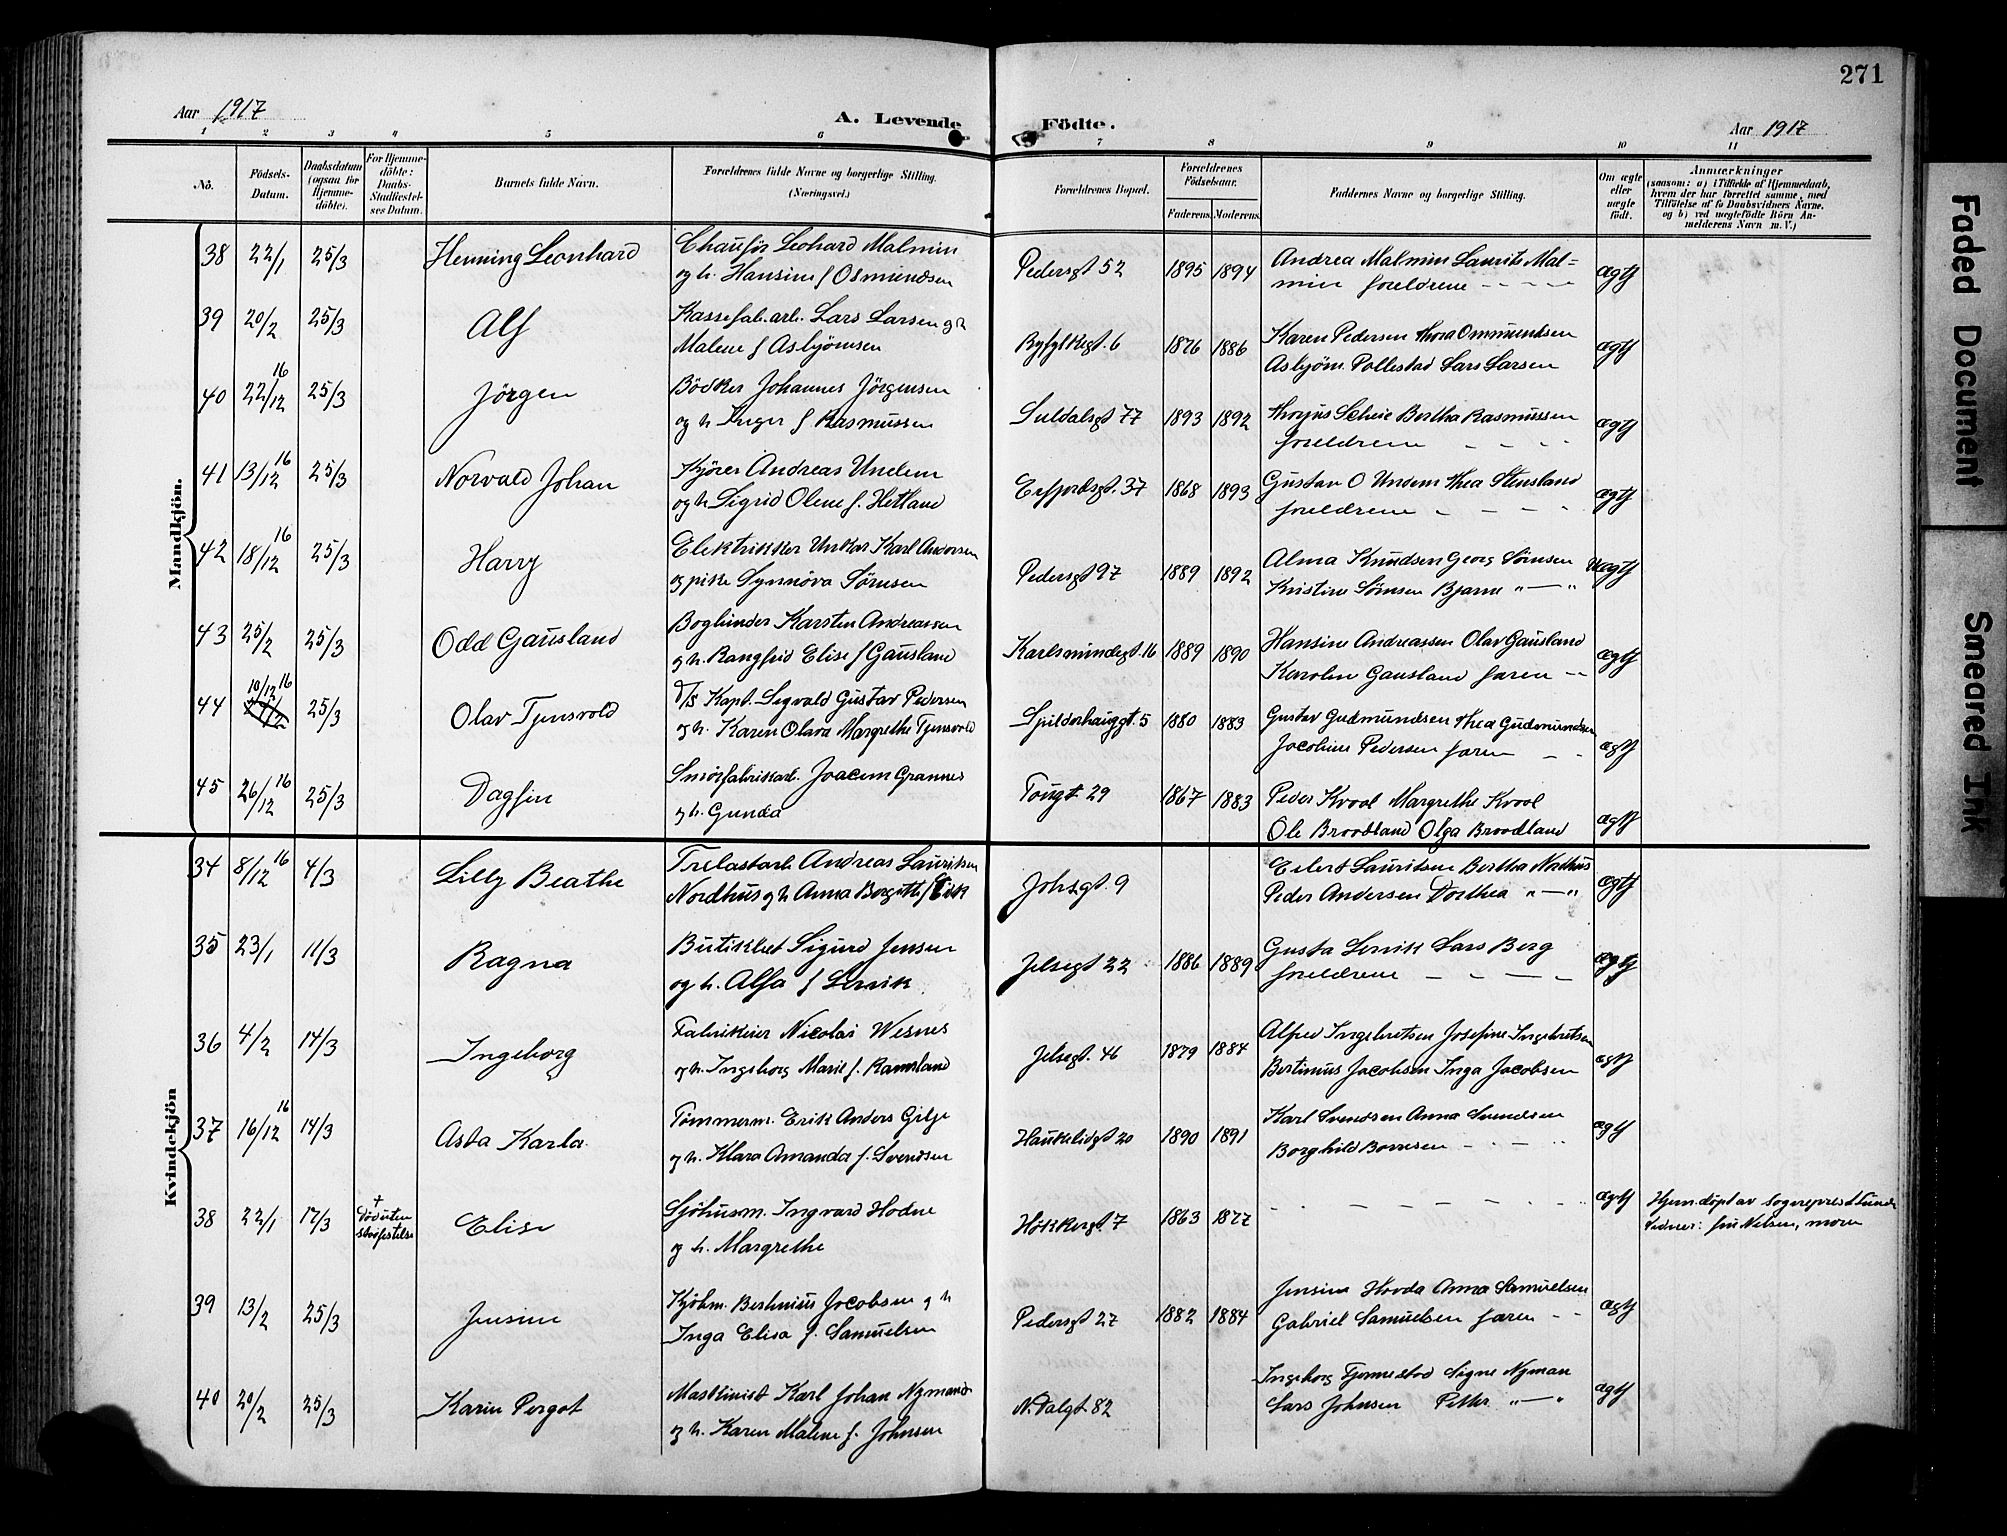 271
Aar 1917
A. Levende
Födte.
Aar 1917
1 2 3 4 5 6 7 8 9 10 11
No.
Födsels-Datum.
Daabsdatum (ogsaa for Hjemme-döbte).
For Hjemme-döbte: Daabs-Stadfæstel-ses Datum.
Barnets fulde Navn.
Forældrenes fulde Navne og borgerlige Stilling. (Næringsvei.)
Forældrenes Bopæl.
Forældrenes Födselsaar.
Faderens. Moderens.
Faddernes Navne og borgerlige Stilling.
Om ægte eller uægte födt.
Anmærkninger
(saasom: a) i Tilfælde af Hjemmedaab,
hvem der har forrettet samme, med
Tilföielse af to Daabsvidners Navne,
og b) ved uægtefödte Börn An-
melderens Navn m. V.)
Mandkjön.
38 22/1 25/3 Henning Leonhard
Chaufür Leohard Malmin
og h. Hansine f Osmundsen
Pedersgt 52 1895 1894
Andrea Malmin Laurits Mal=
min foreldrene - - - -
ægte
39 20/2 25/3 Alf
Kassefab.arb. Lars Larsen og h
Malene f Asbjörnsen
Ryfylkegt. 6 1876 1886
Karen Pedersen Thora Ommundsen
Asbjörn Pollestad Lars Larsen
ægte
40 22/12 16 25/3 Jörgen
Bödker Johannes Jörgensen
og h Inger f Rasmussen
Suldalsgt 77 1893 1892
Scheie Bertha Rasmussen
foreldrene - - - -
ægte
41 13/12 16 25/3 Norvald Johan
Kjörer Andreas Undem
og h Sigrid Olene f. Hetland
Erfjordsgt. 37 1868 1893
Gustav O Undem Thea Stensland
foreldrene - - - -
ægte
42 18/12 16 25/3 Harry
Elektrikker Unkar Karl Andersen
og pike Synnöva Sörnsen
Pedersgt 97 1889 1892
Alma Knudsen Georg Sörnsen
Kristine Sörnsen Bjarne " — "
Uægte
43 25/2 25/3 Odd Gausland
Bogbinder Karsten Andreassen
og h. Rangfrid Elise f Gausland
Karlsmindegt. 16 1889 1890
Hansine Andreassen Olav Gausland
Karolin Gausland faren - -
ægte
44 10/12 16 25/3 Olav Tjensvold
D/S Kapt. Sigvald Gustav Pedersen
og h. Karen Olava Margrethe Tjensvold
Spilderhauggt. 5 1880 1883
Gustav Gudmundsen Thea Gudmundsen
Jacobine Pedersen faren - -
ægte
45 26/12 16 25/3 Dagfin
Smörfabrikkarb. Joacim Grannes
og h. Gunda
Tougt 29 1867 1883
Peder Kvool Margrethe Kvool
Ole Broodland Olga Broodland
ægte
Kvindekjön
34 8/12 16 4/3 Lilly Beathe
Trelastarb. Andreas Lauritsen
Nordhus og h Anna Bergitte f Eik
Johsgt. 9
Eilert Lauritsen Bertha Nordhus
Peder Andersen Dorthea " — "
ægte
35 23/1 11/3 Ragna
Sigurd Jensen
og h. Alfa f Lervik
Jelsegt 22 1886 1889
Gusta Lervik Lars Berg
foreldrene - - — -
ægte
36 4/2 14/3 Ingeborg
Fabrikeier Nicolai Wesnes
og h. Ingeborg Marie f. Ramsland
Jelsegt. 46 1879 1884
Alfred Ingebretsen Josefine Ingebretsen
Bertinius Jacobsen Inga Jacobsen
ægte
37 16/12 16 14/3 Asta Karla
Tömmerm. Erik Anders Gilje
og h. Klara Amanda f. Svendsen
Haukelidgt 20 1890 1891
Karl Svendsen Anna Svendsen
Borghild - - - -
ægte
38 22/1 17/3 + Död uten stadfestelse Elise
Sjöhusm. Ingvard Hodne
og h. Margrethe
Hökkergt 7 1863 1877
- - - - - -
ægte
Hjem.döpt av sogneprest
Vidner: fru Nelsen, moren
39 13/2 25/3 Jensine
Kjöhm. Bertinius Jacobsen og h
Inga Elisa f. Samuelsen
Pedersgt 27 1882 1884
Jensine Hovda Anna Samuelsen
Gabriel Samuelsen faren - -
ægte
40 20/2 25/3 Karin Pergot
Maskinist Karl Johan Nymann
og h. Karen Malene f. Johnsen
N. Dalgt 82
Ingeborg Signe Nyman
Lars Johnsen Petter " — "
ægte
Faded Document
Smeared Ink